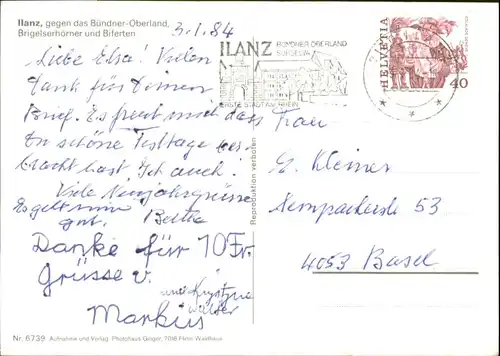 Ilanz, gegen das Bündner-Oberland,
Brigelserhörner und Biferten
3.1.84
ILANZ
BÜNDNER OBERLAND
SURSELVA
ERSTE STADT AM RHEIN
HELVETIA
40
Liebe Elsa! Vielen
Dank für Deinen
Brief. Es freut mich dass
Du schöne Festtage ver-
bracht hast. Ich auch!
Viele Neujahrsgrüsse
Es geht mir
gut. Bertha
Danke für 10 Fr.
Grüsse v.
und Krystyna
Walter
Markus
Frau
E. Kleiner
Sempacherstr 53
4053 Basel
Reproduktion verboten
Nr. 6739 Aufnahme und Verlag: Photohaus Geiger, 7018 Flims-Waldhaus